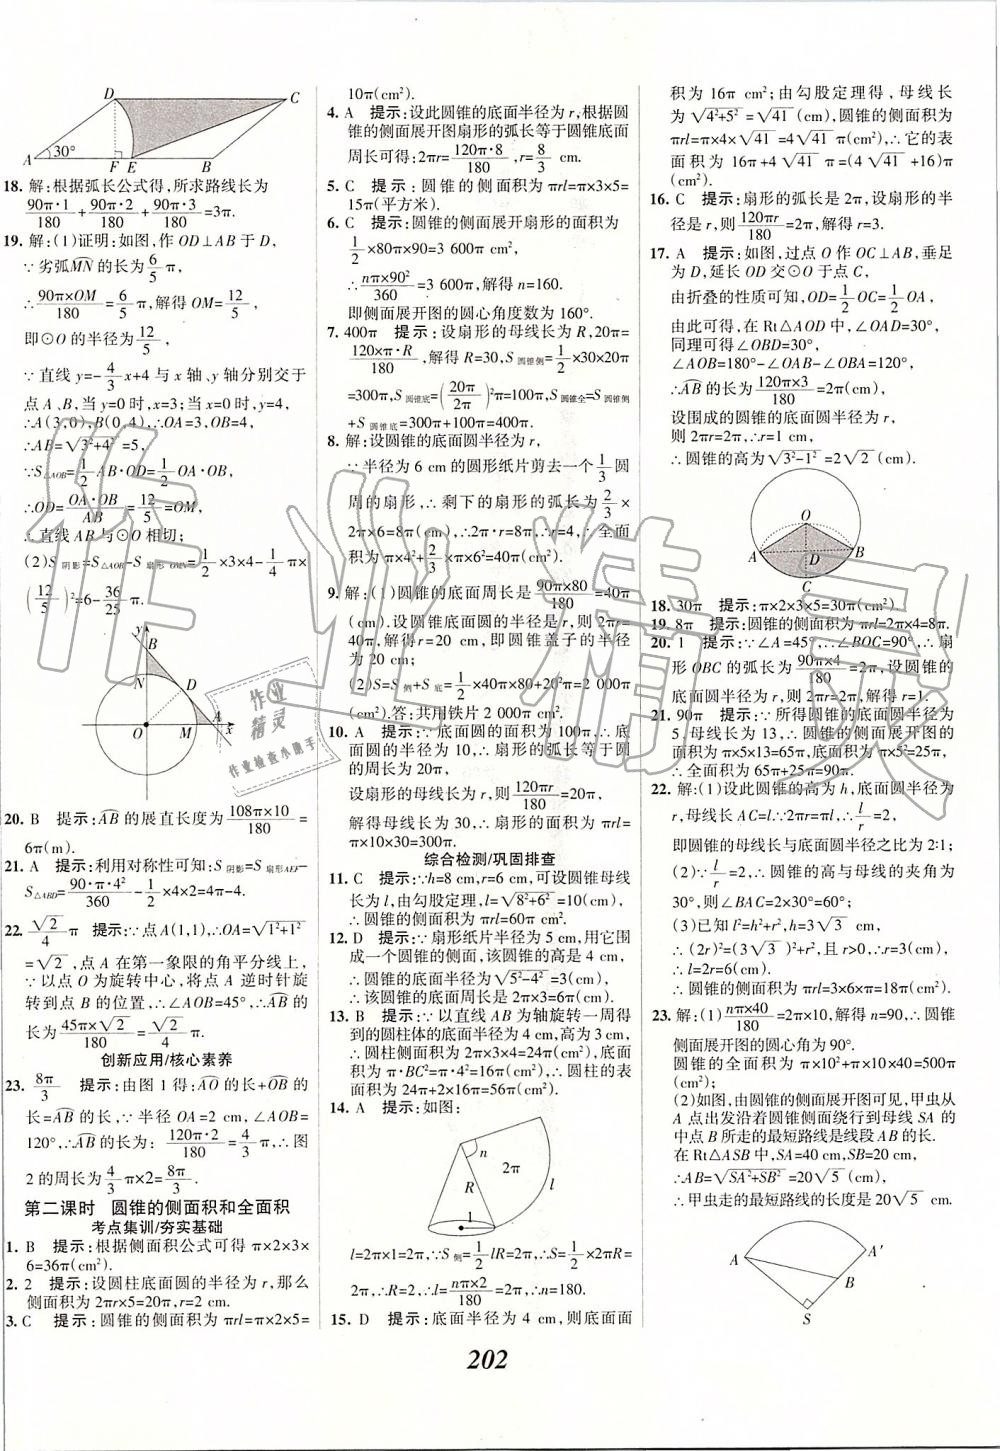 D
C
A
30°
F E
B
18. 解:根据弧长公式得,所求路线长为
90π·1/180+90π·2/180+90π·3/180=3π.
19. 解:(1)证明:如图,作 OD⊥AB 于 D,
∵劣弧MN的长为6/5π,
∴90π×OM/180=6/5π,解得 OM=12/5,
即⊙O 的半径为12/5,
∵直线 y=-4/3x+4 与 x 轴、y 轴分别交于
点 A、B,当 y=0 时,x=3;当 x=0 时,y=4,
∴A(3,0),B(0,4),∴OA=3,OB=4,
∴AB=√3²+4²=5,
∵S△AOB=1/2AB·OD=1/2OA·OB,
∴OD=OA·OB/AB=12/5=OM,
∴直线 AB 与⊙O 相切;
(2)S阴影=S△AOB-S扇形OMN=1/2×3×4-1/4π×
(12/5)²=6-36/25π.
y
B
N
D
O
M
A
x
20. B 提示:AB的展直长度为108π×10/180=
6π(m).
21. A 提示:利用对称性可知:S阴影=S扇形AEF-
S△ABD=90·π·4²/360-1/2×4×2=4π-4.
22. √2/4π 提示:∵点 A(1,1),∴OA=√1²+1²
=√2,点 A 在第一象限的角平分线上,
∵以点 O 为旋转中心,将点 A 逆时针旋
转到点 B 的位置,∴∠AOB=45°,∴AB的
长为45π×√2/180=√2/4π.
创新应用/核心素养
23. 8π/3 提示:由图 1 得:AO的长+OB的
长=AB的长,∵半径 OA=2 cm,∠AOB=
120°,∴AB的长为:120π·2/180=4/3π,∴图
2 的周长为4/3π×2=8π/3.
第二课时 圆锥的侧面积和全面积
考点集训/夯实基础
1. B 提示:根据侧面积公式可得 π×2×3×
6=36π(m²).
2. 2 提示:设圆柱底面圆的半径为 r,那么
侧面积为 2πr×5=20π,r=2 cm.
3. C 提示:圆锥的侧面积为 πrl=π×2×5=
10π(cm²).
4. A 提示:设此圆锥的底面半径为 r,根据圆
锥的侧面展开图扇形的弧长等于圆锥底面
周长可得:2πr=120π·8/180,r=8/3 cm.
5. C 提示:圆锥的侧面积为πrl=π×3×5=
15π(平方米).
6. C 提示:圆锥的侧面展开扇形的面积为
1/2×80π×90=3 600π cm²,
∴nπ×90²/360=3 600π,解得 n=160.
即侧面展开图的圆心角度数为 160°.
7. 400π 提示:设扇形的母线长为 R,20π=
120×π·R/180,解得 R=30,S圆锥侧=1/2×30×20π
=300π,S圆锥底=(20π/2π)²π=100π,S圆锥全=S圆锥侧
+S圆锥底=300π+100π=400π.
8. 解:设圆锥的底面圆半径为 r,
∵半径为 6 cm 的圆形纸片剪去一个1/3圆
周的扇形,∴剩下的扇形的弧长为2/3×
2π×6=8π(cm),∴2π·r=8π,∴r=4,∴全面
积为 π×4²+2/3×π×6²=40π(cm²).
9. 解:(1)圆锥的底面周长是90π×80/180=40π
(cm).设圆锥底面圆的半径是 r,则 2πr=
40π,解得 r=20 cm,即圆锥盖子的半径
为 20 cm;
(2)S=S侧+S底=1/2×40π×80+20²π=2 000π
(cm²).答:共用铁片 2 000π cm².
10. A 提示:∵底面圆的面积为 100π,∴底
面圆的半径为 10,∴扇形的弧长等于圆
的周长为 20π,
设扇形的母线长为 r,则120πr/180=20π,
解得母线长为 30,∴扇形的面积为 πrl=
π×10×30=300π.
综合检测/巩固排查
11. C 提示:∵h=8 cm,r=6 cm,可设圆锥母线
长为 l,由勾股定理,l=√8²+6²=10(cm)
∴圆锥的侧面积为 πrl=60π cm².
12. D 提示:∵扇形纸片半径为 5 cm,用它围
成一个圆锥的侧面,该圆锥的高是 4 cm,
∴圆锥的底面半径为 √5²-4²=3(cm),
∴该圆锥的底面周长是 2π×3=6π(cm).
13. B 提示:∵以直线 AB 为轴旋转一周得
到的圆柱体的底面半径为 4 cm,高为 3 cm,
∴圆柱侧面积=2π×4×3=24π(cm²),底面积
为 π·BC²=π·4²=16π(cm²),∴圆柱的表
面积=24π+2×16π=56π(cm²).
14. A 提示:如图:
n
2π
R
l
1
l=2π×1=2π,∵S侧=1/2lR=2π,∴S=1/2×2πR
=2π,∴R=2,∵l=nπ×2/180=2π,∴n=180.
15. D 提示:底面半径为 4 cm,则底面面
积为 16π cm²;由勾股定理得,母线长
为 √4²+5²=√41(cm),圆锥的侧面积为
πrl=π×4×√41=4√41π(cm²),∴它的表
面积为 16π+4√41π=(4√41+16)π
(cm²).
16. C 提示:扇形的弧长是 2π,设扇形的半
径是 r,则120πr/180=2π,解得 r=3.
17. A 提示:如图,过点 O 作 OC⊥AB,垂足
为 D,延长 OD 交⊙O 于点 C,
由折叠的性质可知,OD=1/2OC=1/2OA,
由此可得,在 Rt△AOD 中,∠OAD=30°,
同理可得∠OBD=30°,
∠AOB=180°-∠OAB-∠OBA=120°,
∴AB的长为120π×3/180=2π(cm),
设围成的圆锥的底面圆半径为 r,
则 2πr=2π,∴r=1 cm,
∴圆锥的高为 √3²-1²=2√2(cm).
O
A
D
B
C
18. 30π 提示:π×2×3×5=30π(cm²).
19. 8π 提示:圆锥的侧面积为 πrl=π×2×4=8π.
20. 1 提示:∵∠A=45°,∴∠BOC=90°,∴扇
形 OBC 的弧长为90π×4/180=2π,设圆锥的
底面圆半径为 r,则 2πr=2π,解得 r=1.
21. 90π 提示:∵所得圆锥的底面圆半径为
5,母线长为 13,∴圆锥的侧面展开图的
面积为 π×5×13=65π,底面积为 5²π=25π,
∴全面积为 65π+25π=90π.
22. 解:(1)设此圆锥的高为 h,底面圆半径为
r,母线长 AC=l∵2πr=πl,∴l/r=2,
即圆锥的母线长与底面圆半径之比为 2∶1;
(2)∵l/r=2,∴圆锥的高与母线的夹角为
30°,则∠BAC=2×30°=60°;
(3)已知 l²=h²+r²,h=3√3 cm,
∴(2r)²=(3√3)²+r²,且 r>0,∴r=3(cm),
∴l=2r=6(cm),
∴圆锥的侧面积为 πrl=3×6×π=18π(cm²).
23. 解:(1)nπ×40/180=2π×10,解得 n=90,∴圆锥
侧面展开图的圆心角为 90°.
圆锥的全面积为 π×10²+π×10×40=500π
(cm²);
(2)如图,由圆锥的侧面展开图可见,甲虫从
A 点出发沿着圆锥侧面绕行到母线 SA 的
中点 B 所走的最短路线是线段 AB 的长.
在 Rt△ASB 中,SA=40 cm,SB=20 cm,
∴AB=√SA²+SB²=20√5(cm),
∴甲虫走的最短路线的长度是 20√5 cm.
A
A′
B
S
202
作业精灵
作业
精灵
作业检查小助手